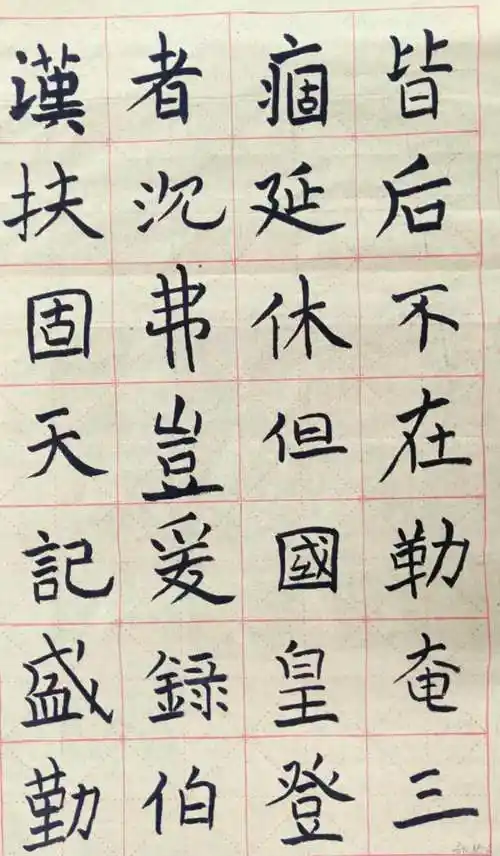 皆后不在勒奄三
痼延休但國皇登
者沉弗豈爰錄伯
漢扶固天記盛勤